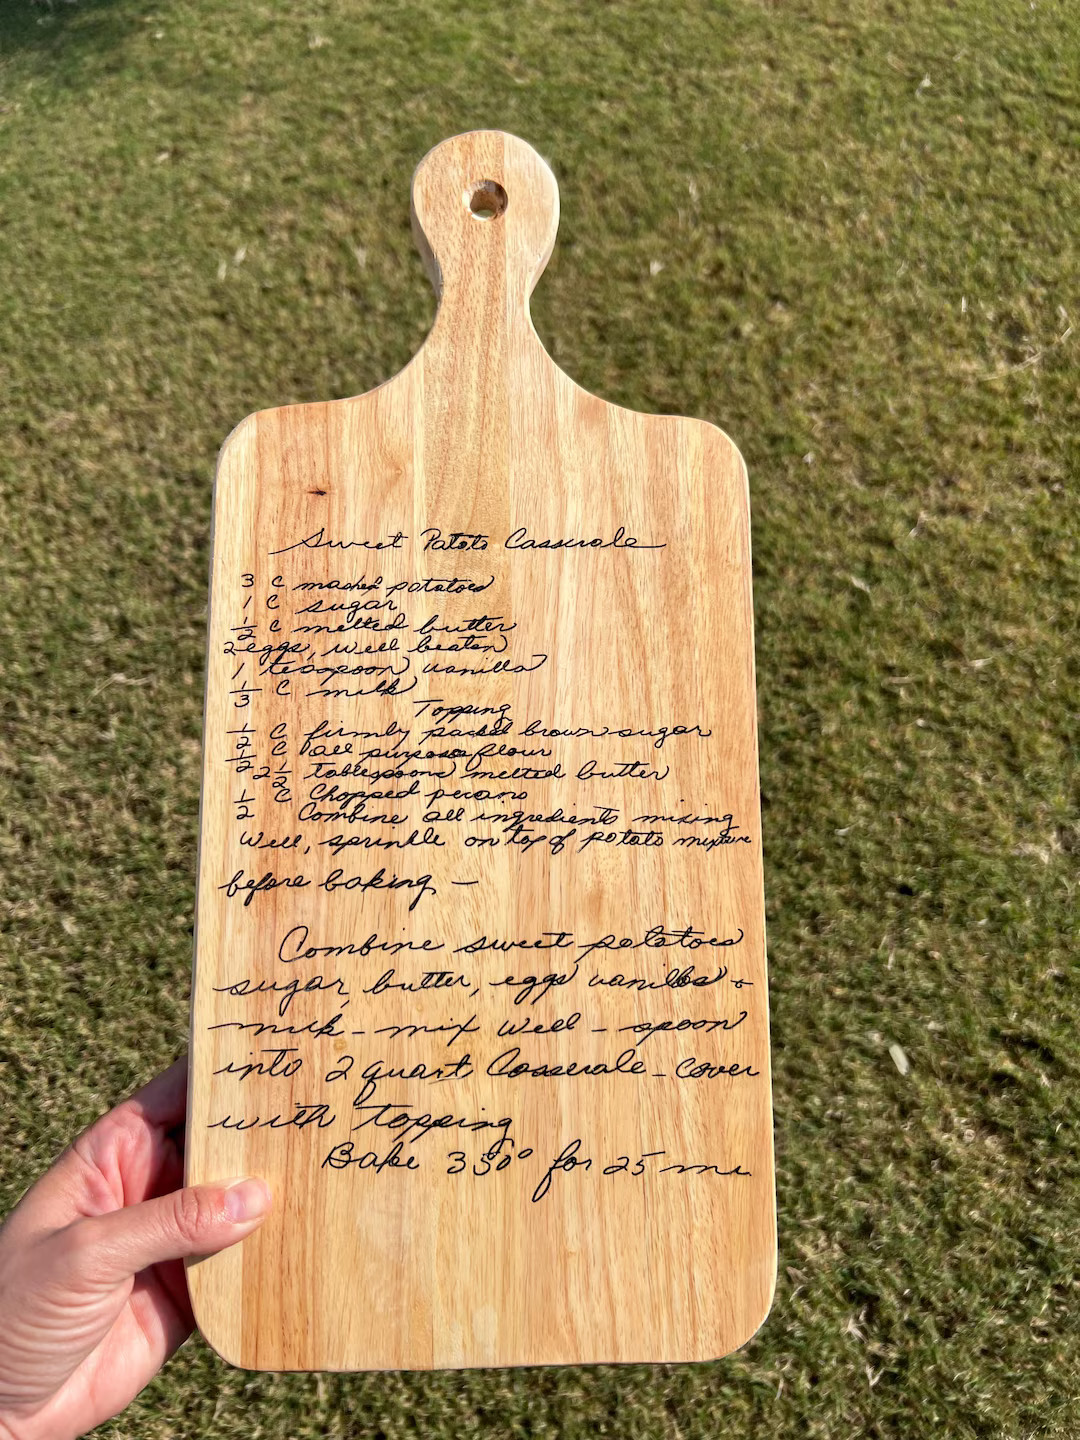 Sweet Patoto Casserole
3 C mashed potatoes
1 C sugar
1/2 C melted butter
2 eggs, well beaten
1 teaspoon vanilla
1/3 C milk
Topping
1/2 C firmly packed brown sugar
1/2 C all purpose flour
2 1/2 tablespoons melted butter
1/2 C Chopped pecans
Combine all ingredients mixing
Well, sprinkle on top of potato mixture
before baking —
Combine sweet potatoes
sugar, butter, eggs vanilla &
milk - mix well - spoon
into 2 quart Casserole - cover
with topping
Bake 350° for 25 mi